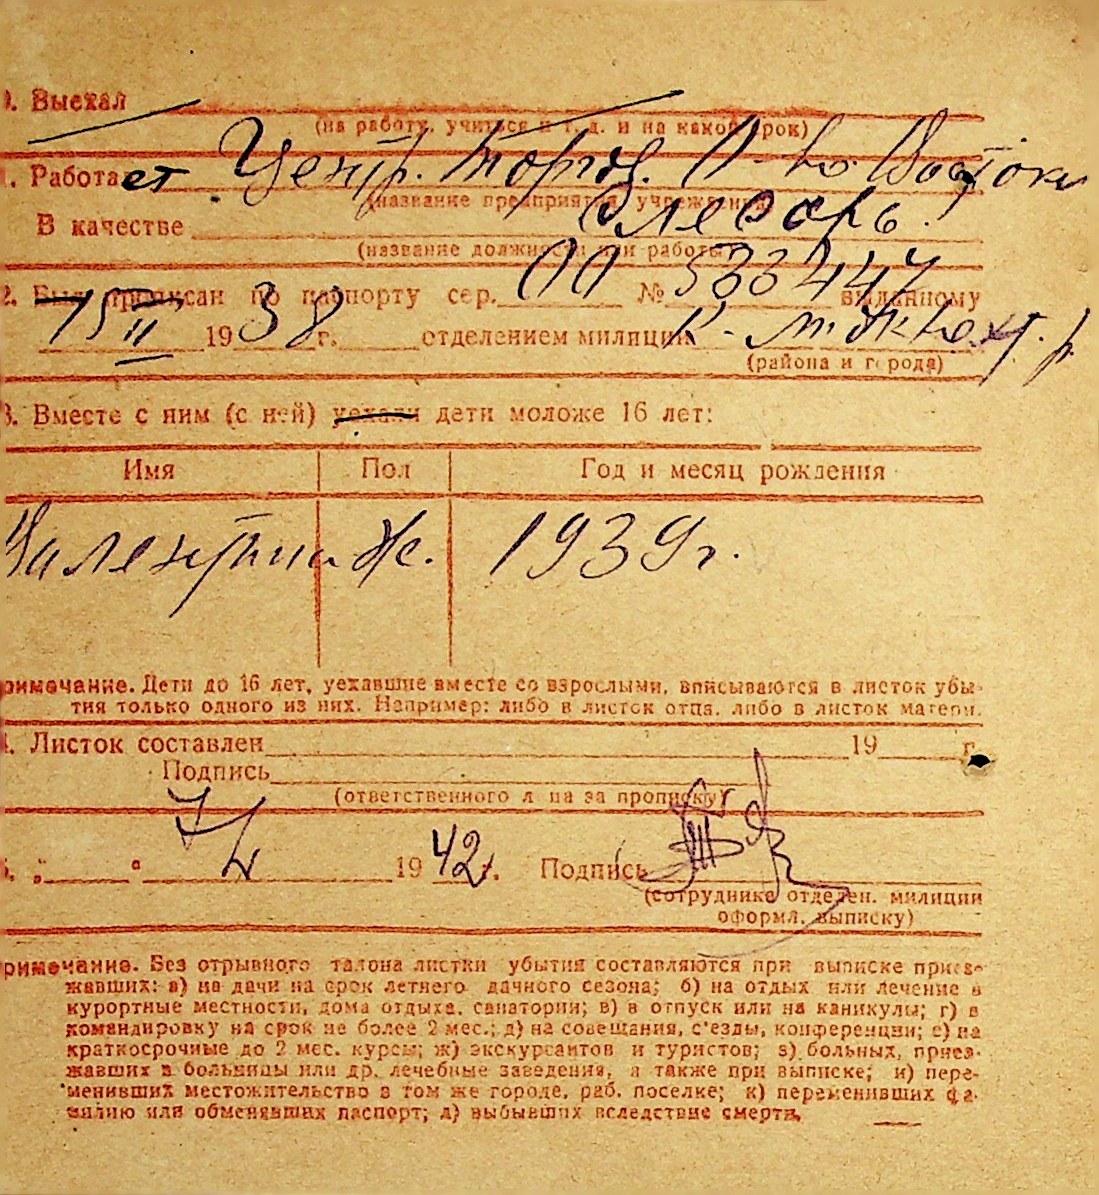 0. Выехал
(на работу, учиться и т. д. и на какой срок)
1. Работает Центр. торгов. П-во Восток
(название предприятия, учреждения)
В качестве Слесарь.
(название должности или работы)
2. Был прописан по паспорту сер. № 533447 выданному
15 II 1938 г. отделением милиции
(района и города)
3. Вместе с ним (с ней) уехали дети моложе 16 лет:
Имя Пол Год и месяц рождения
Валентина Ж. 1939 г.
римечание. Дети до 16 лет, уехавшие вместе со взрослыми, вписываются в листок убы-
тия только одного из них. Например: либо в листок отца, либо в листок матери.
4. Листок составлен 19 г.
Подпись
(ответственного лица за прописку)
5. „ “ 7/I 1942 г. Подпись
(сотрудника отделен. милиции
оформл. выписку)
римечание. Без отрывного талона листки убытия составляются при выписке приез-
жавших: а) на дачи на срок летнего дачного сезона; б) на отдых или лечение в
курортные местности, дома отдыха, санатории; в) в отпуск или на каникулы; г) в
командировку на срок не более 2 мес.; д) на совещания, с'езды, конференции; е) на
краткосрочные до 2 мес. курсы; ж) экскурсантов и туристов; з) больных, приез-
жавших в больницы или др. лечебные заведения, а также при выписке; и) пере-
менивших местожительство в том же городе, раб. поселке; к) переменивших фа-
милию или обменявших паспорт; л) выбывших вследствие смерти.